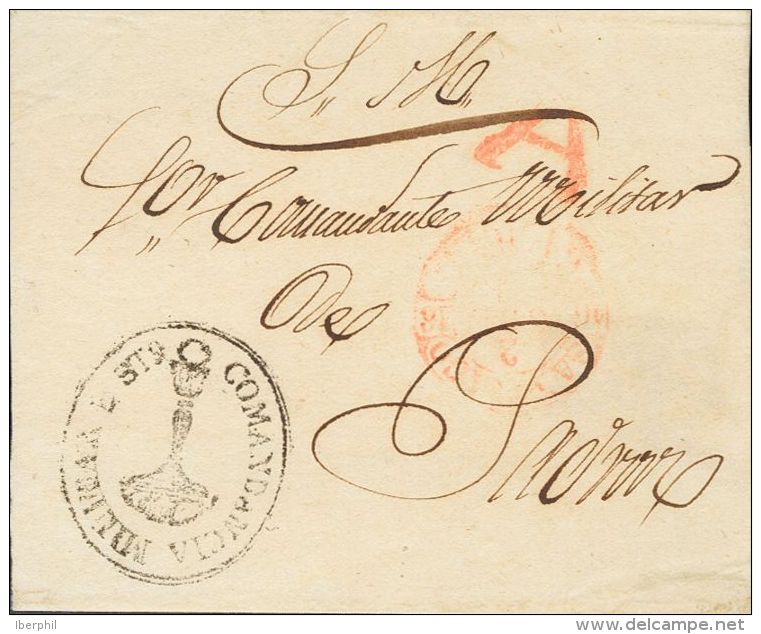 S. M.
Sor Comandante Militar
de
Padron
COMANDANCIA MILITAR D STO
Iberphil
delcampe.net